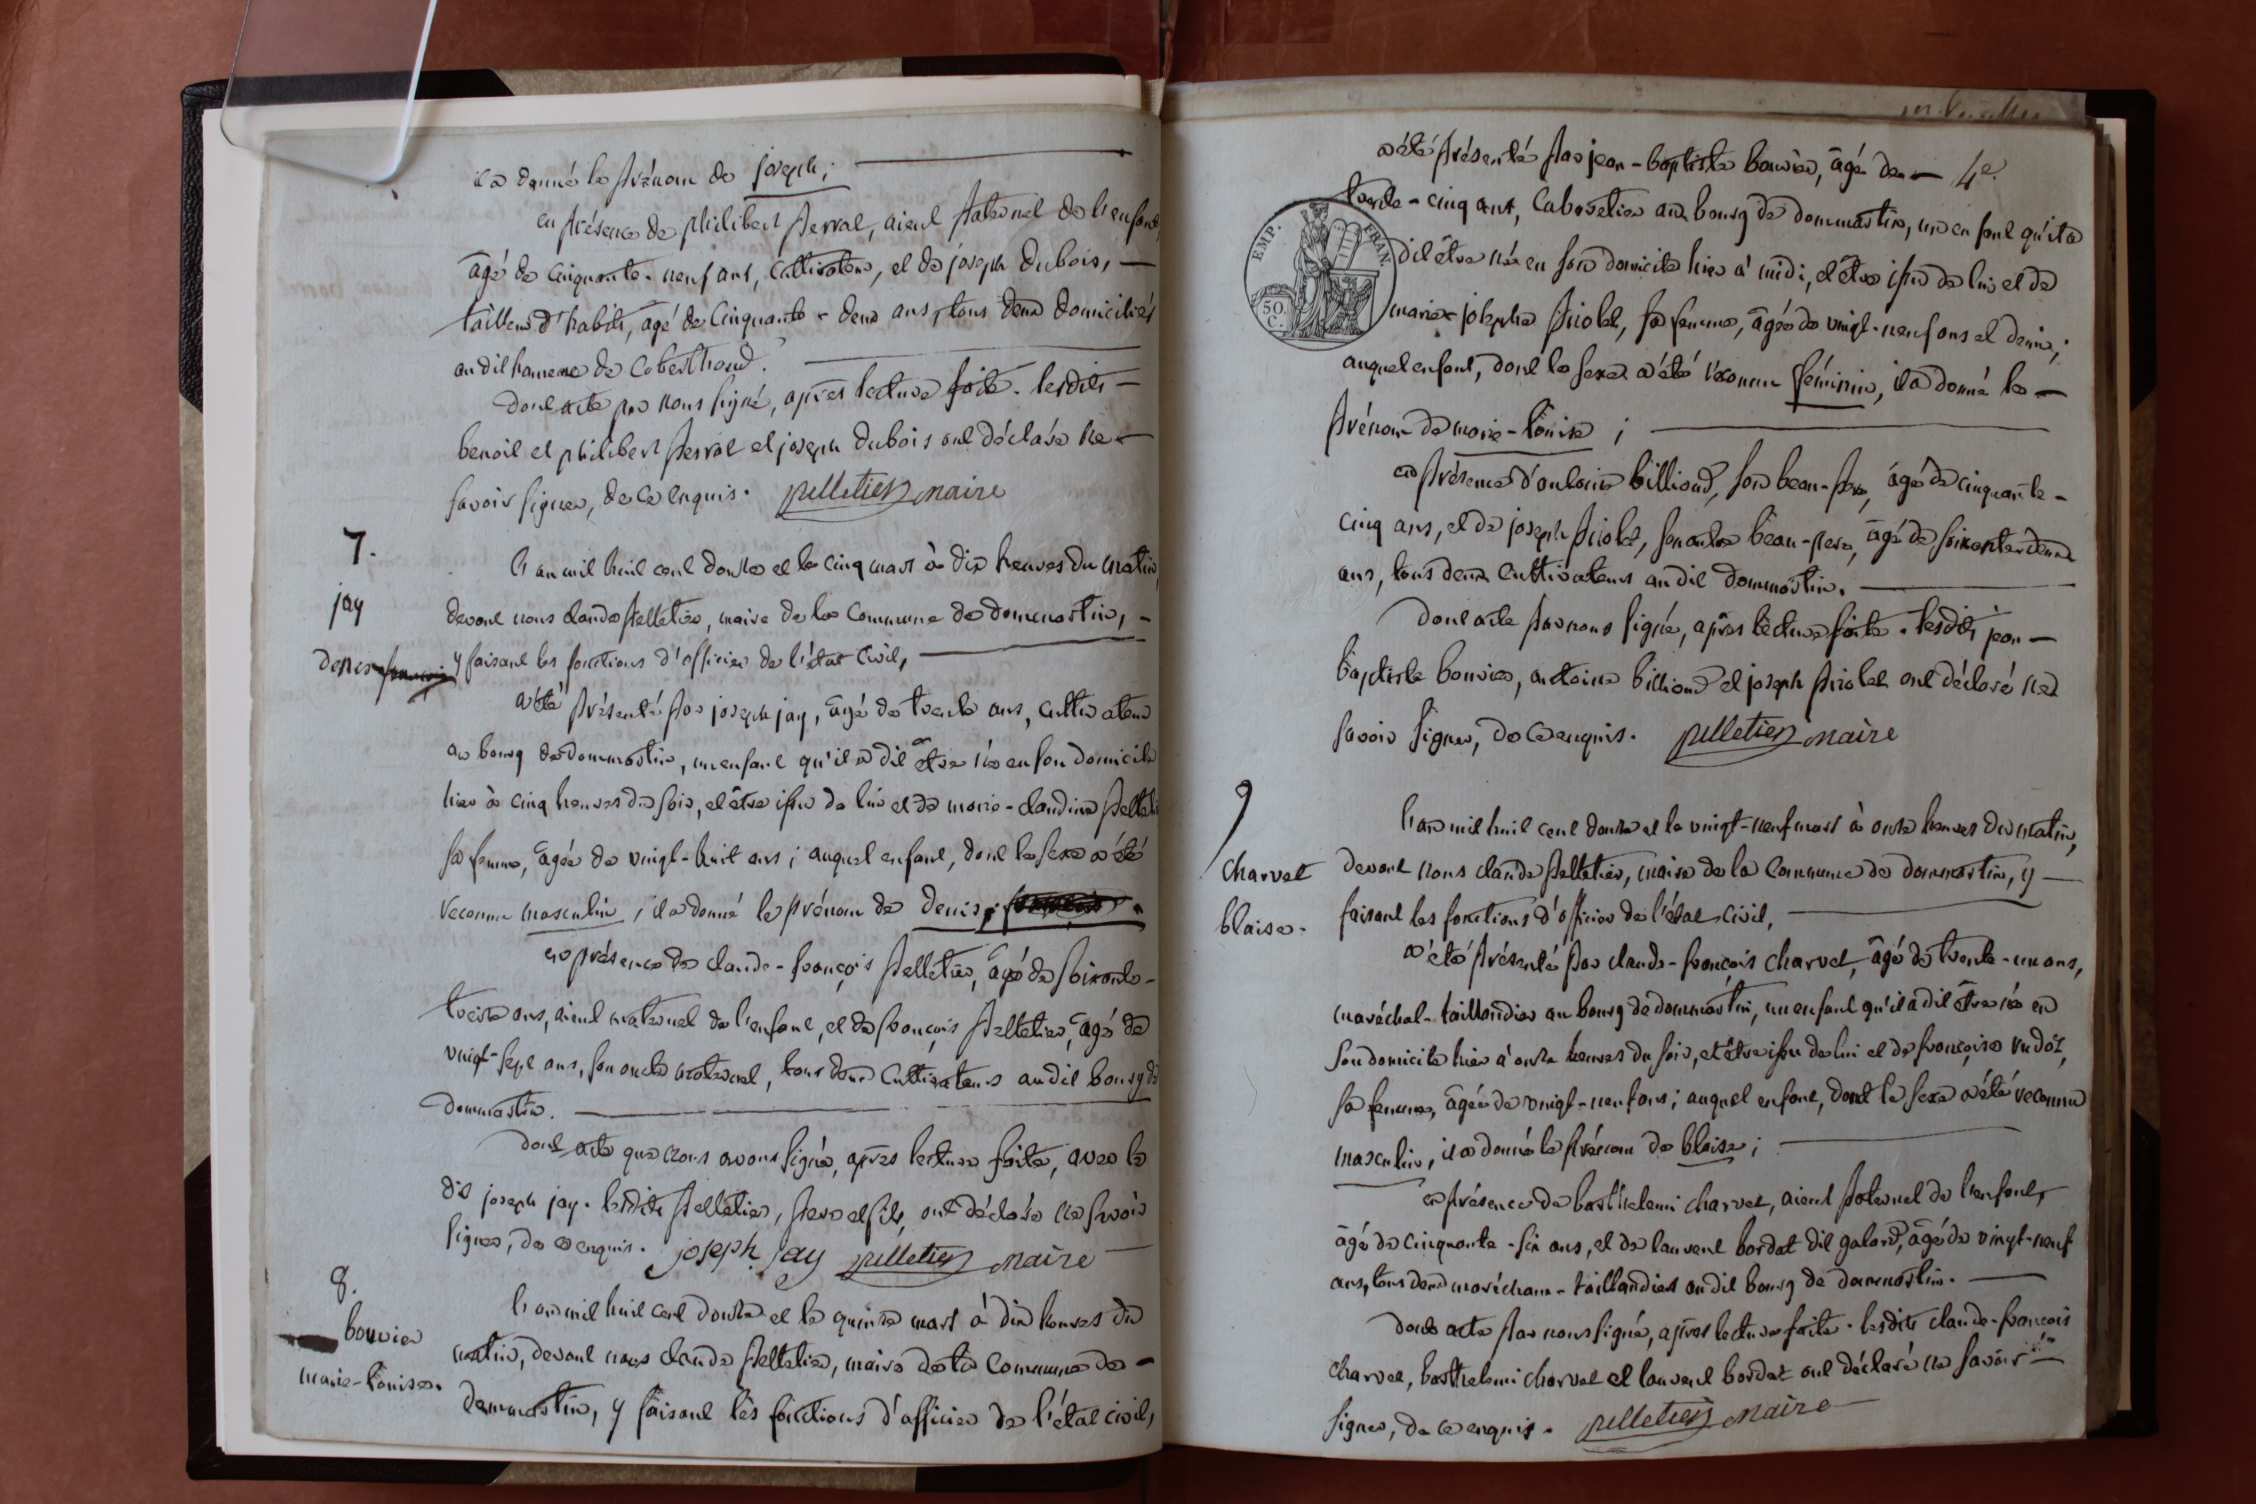 il a donné le prénom de joseph;
en présence de philibert perral, aieul paternel de l'enfant,
âgé de cinquante-neuf ans, cultivateur, et de joseph dubois,
tailleur d'habits, âgé de cinquante-deux ans, tous deux domiciliés
au dit hameau de
dont acte par nous signé, après lecture faite. lesdits
benoit et philibert perral et joseph dubois ont déclaré ne
savoir signer, de ce enquis. pelletier maire
7.
jay
denis
l'an mil huit cent douze et le cinq mars à dix heures du matin,
devant nous claude pelletier, maire de la commune de dommartin,
y faisant les fonctions d'officier de l'état civil,
a été présenté par joseph jay, âgé de trente ans, cultivateur
au bourg de dommartin, un enfant qu'il a dit être né en son domicile
hier à cinq heures du soir, et être issu de lui et de marie-claudine pelletier
sa femme, âgée de vingt-huit ans; auquel enfant, dont le sexe a été
reconnu masculin, il a donné le prénom de denis
en présence de claude-françois pelletier, âgé de soixante-
treize ans, aieul maternel de l'enfant, et de françois pelletier, âgé de
vingt-sept ans, son oncle maternel, tous deux cultivateurs audit bourg de
dommartin.
dont acte que nous avons signé, après lecture faite, avec le
dit joseph jay. lesdits pelletier, pere et fils, ont déclaré ne savoir
signer, de ce enquis. joseph jay pelletier maire
8.
bouvier
marie-louise.
l'an mil huit cent douze et le quinze mars à dix heures du
matin, devant nous claude pelletier, maire de la commune de
dommartin, y faisant les fonctions d'officier de l'état civil,
a été présenté par jean-baptiste bouvier, âgé de 4e.
trente-cinq ans, cabaretier au bourg de dommartin, un enfant qu'il a
dit être né en son domicile hier à midi, et être issu de lui et de
marie-josephe piolet, sa femme, âgée de vingt-neuf ans et demi;
auquel enfant, dont le sexe a été reconnu féminin, il a donné le
prénom de marie-louise;
en présence d'antoine billioud, son beau-père, âgé de cinquante-
cinq ans, et de joseph piolet, son autre beau-pere, âgé de soixante-deux
ans, tous deux cultivateurs audit dommartin.
dont acte par nous signé, après lecture faite. lesdits jean-
baptiste bouvier, antoine billioud et joseph piolet ont déclaré ne
savoir signer, de ce enquis. pelletier maire
EMP. FRAN.
50 C.
9
charvet
blaise.
l'an mil huit cent douze et le vingt-neuf mars à onze heures du matin,
devant nous claude pelletier, maire de la commune de dommartin, y
faisant les fonctions d'officier de l'état civil,
a été présenté par claude-françois charvet, âgé de trente-un ans,
maréchal-taillandier au bourg de dommartin, un enfant qu'il a dit être né en
son domicile hier à onze heures du soir, et être issu de lui et de françoise
sa femme, âgée de vingt-neuf ans; auquel enfant, dont le sexe a été reconnu
masculin, il a donné le prénom de blaise;
en présence de barthelemi charvet, aieul paternel de l'enfant,
âgé de cinquante-six ans, et de laurent bordat dit galand, âgé de vingt-neuf
ans, tous deux maréchaux-taillandiers audit bourg de dommartin.
dont acte par nous signé, après lecture faite. lesdits claude-françois
charvet, barthelemi charvet et laurent bordat ont déclaré ne savoir
signer, de ce enquis. pelletier maire